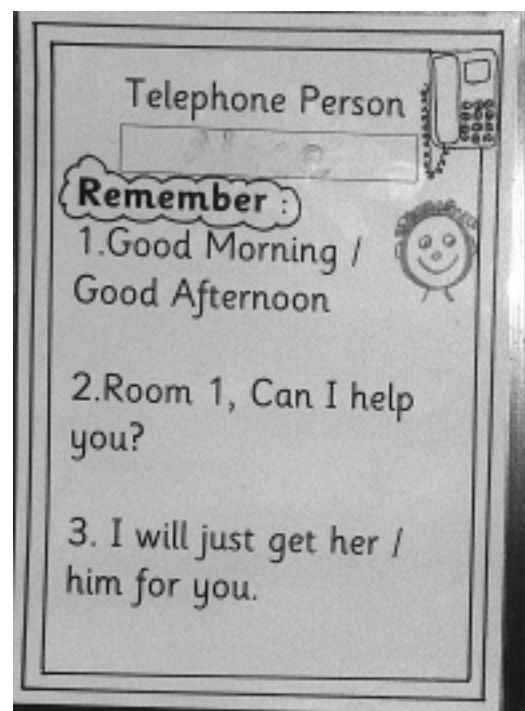 Telephone Person
Remember :
1.Good Morning /
Good Afternoon
2.Room 1, Can I help
you?
3. I will just get her /
him for you.